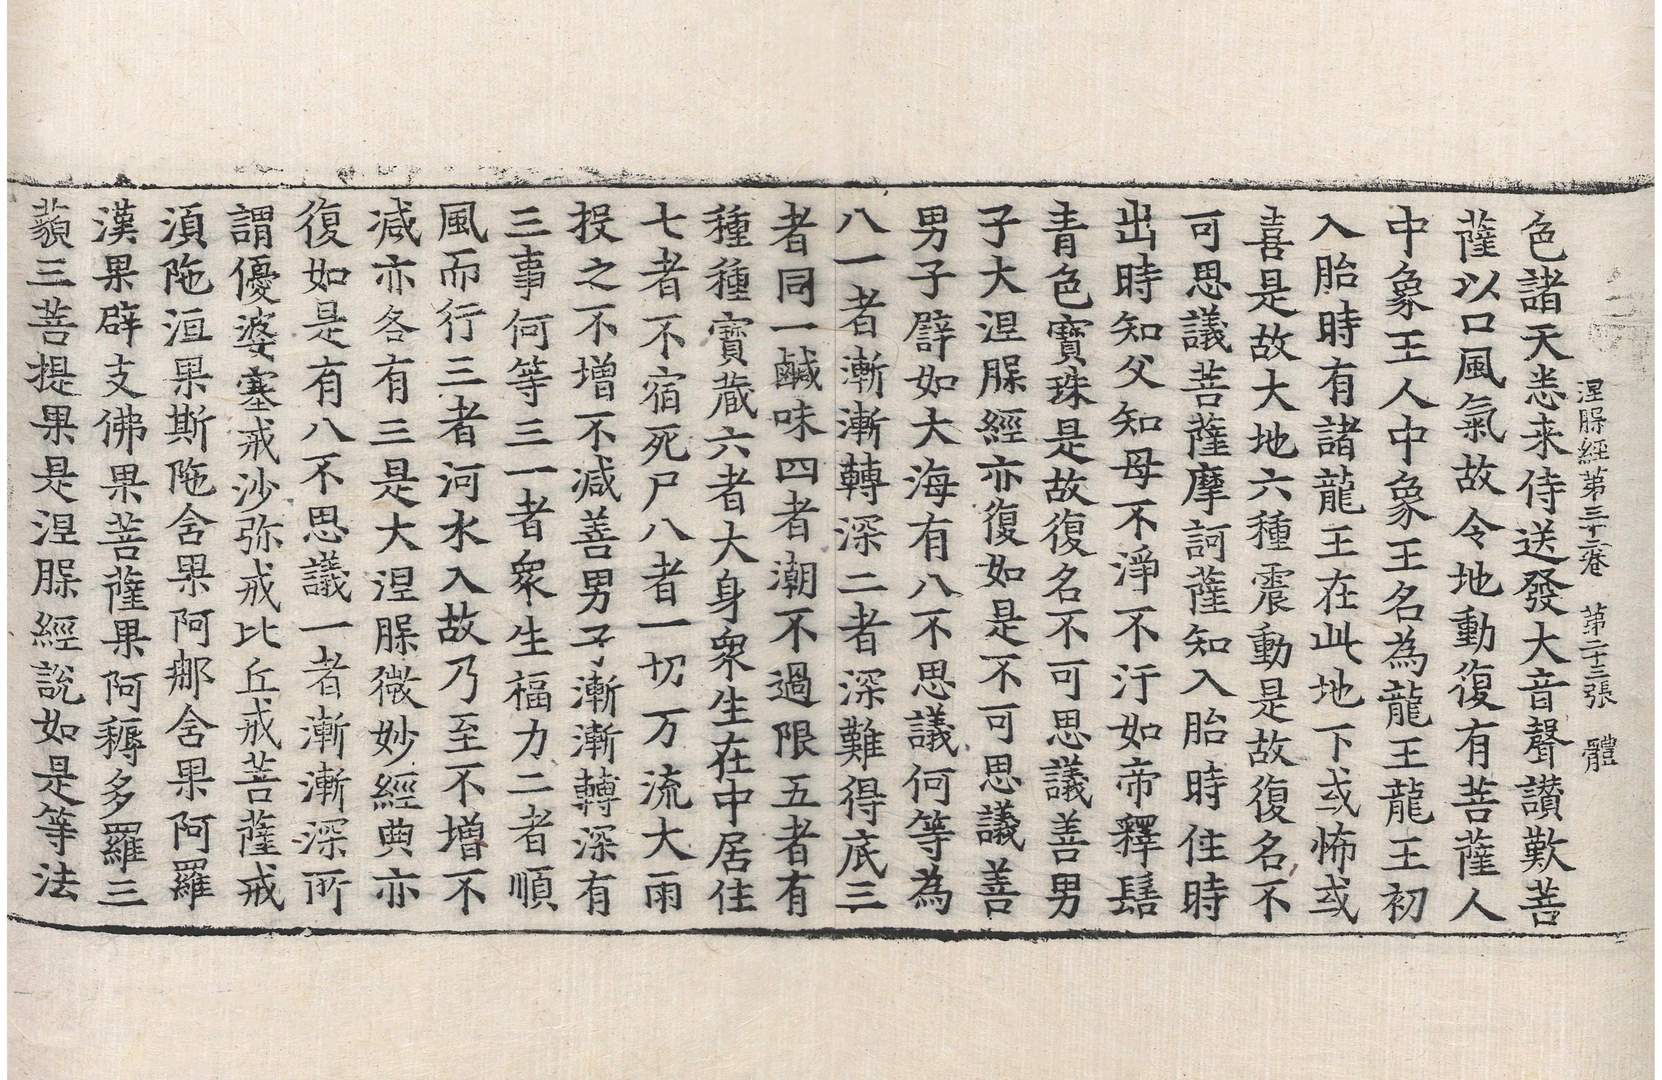 涅脲經第三十二卷　第二十三張　體
色諸天悉来侍送發大音聲讃歎菩
薩以口風氣故令地動復有菩薩人
中象王人中象王名為龍王龍王初
入胎時有諸龍王在此地下或怖或
喜是故大地六種震動是故復名不
可思議菩薩摩訶薩知入胎時住時
出時知父知母不淨不汙如帝釋髻
青色寳珠是故復名不可思議善男
子大涅脲經亦復如是不可思議善
男子譬如大海有八不思議何等為
八一者漸漸轉深二者深難得底三
者同一鹹味四者潮不過限五者有
種種寳藏六者大身衆生在中居住
七者不宿死尸八者一切万流大雨
投之不增不減善男子漸漸轉深有
三事何等三一者衆生福力二者順
風而行三者河水入故乃至不增不
减亦各有三是大涅脲微妙經典亦
復如是有八不思議一者漸漸深所
謂優婆塞戒沙弥戒比丘戒菩薩戒
湏陁洹果斯陁含果阿那含果阿羅
漢果辟支佛果菩薩果阿耨多羅三
藐三菩提果是涅脲經說如是等法